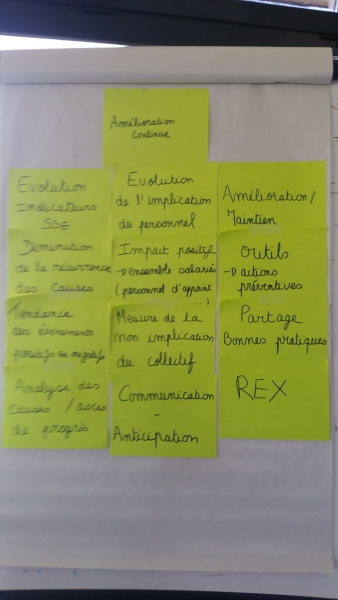 Amélioration
Continue
Evolution
Indicateurs
SSE
Diminution
de la récurrence
des Causes
Tendance
des Evénements
positifs ou négatifs
Analyse des
Causes / axes
de progrès
Evolution
de l'implication
du personnel
Impact positif
→ ensemble salariés
(personnel d'appoint
...)
Mesure de la
non implication
du collectif
Communication
-
Anticipation
Amélioration/
Maintien
Outils
→ actions
préventives
Partage
Bonnes pratiques
REX